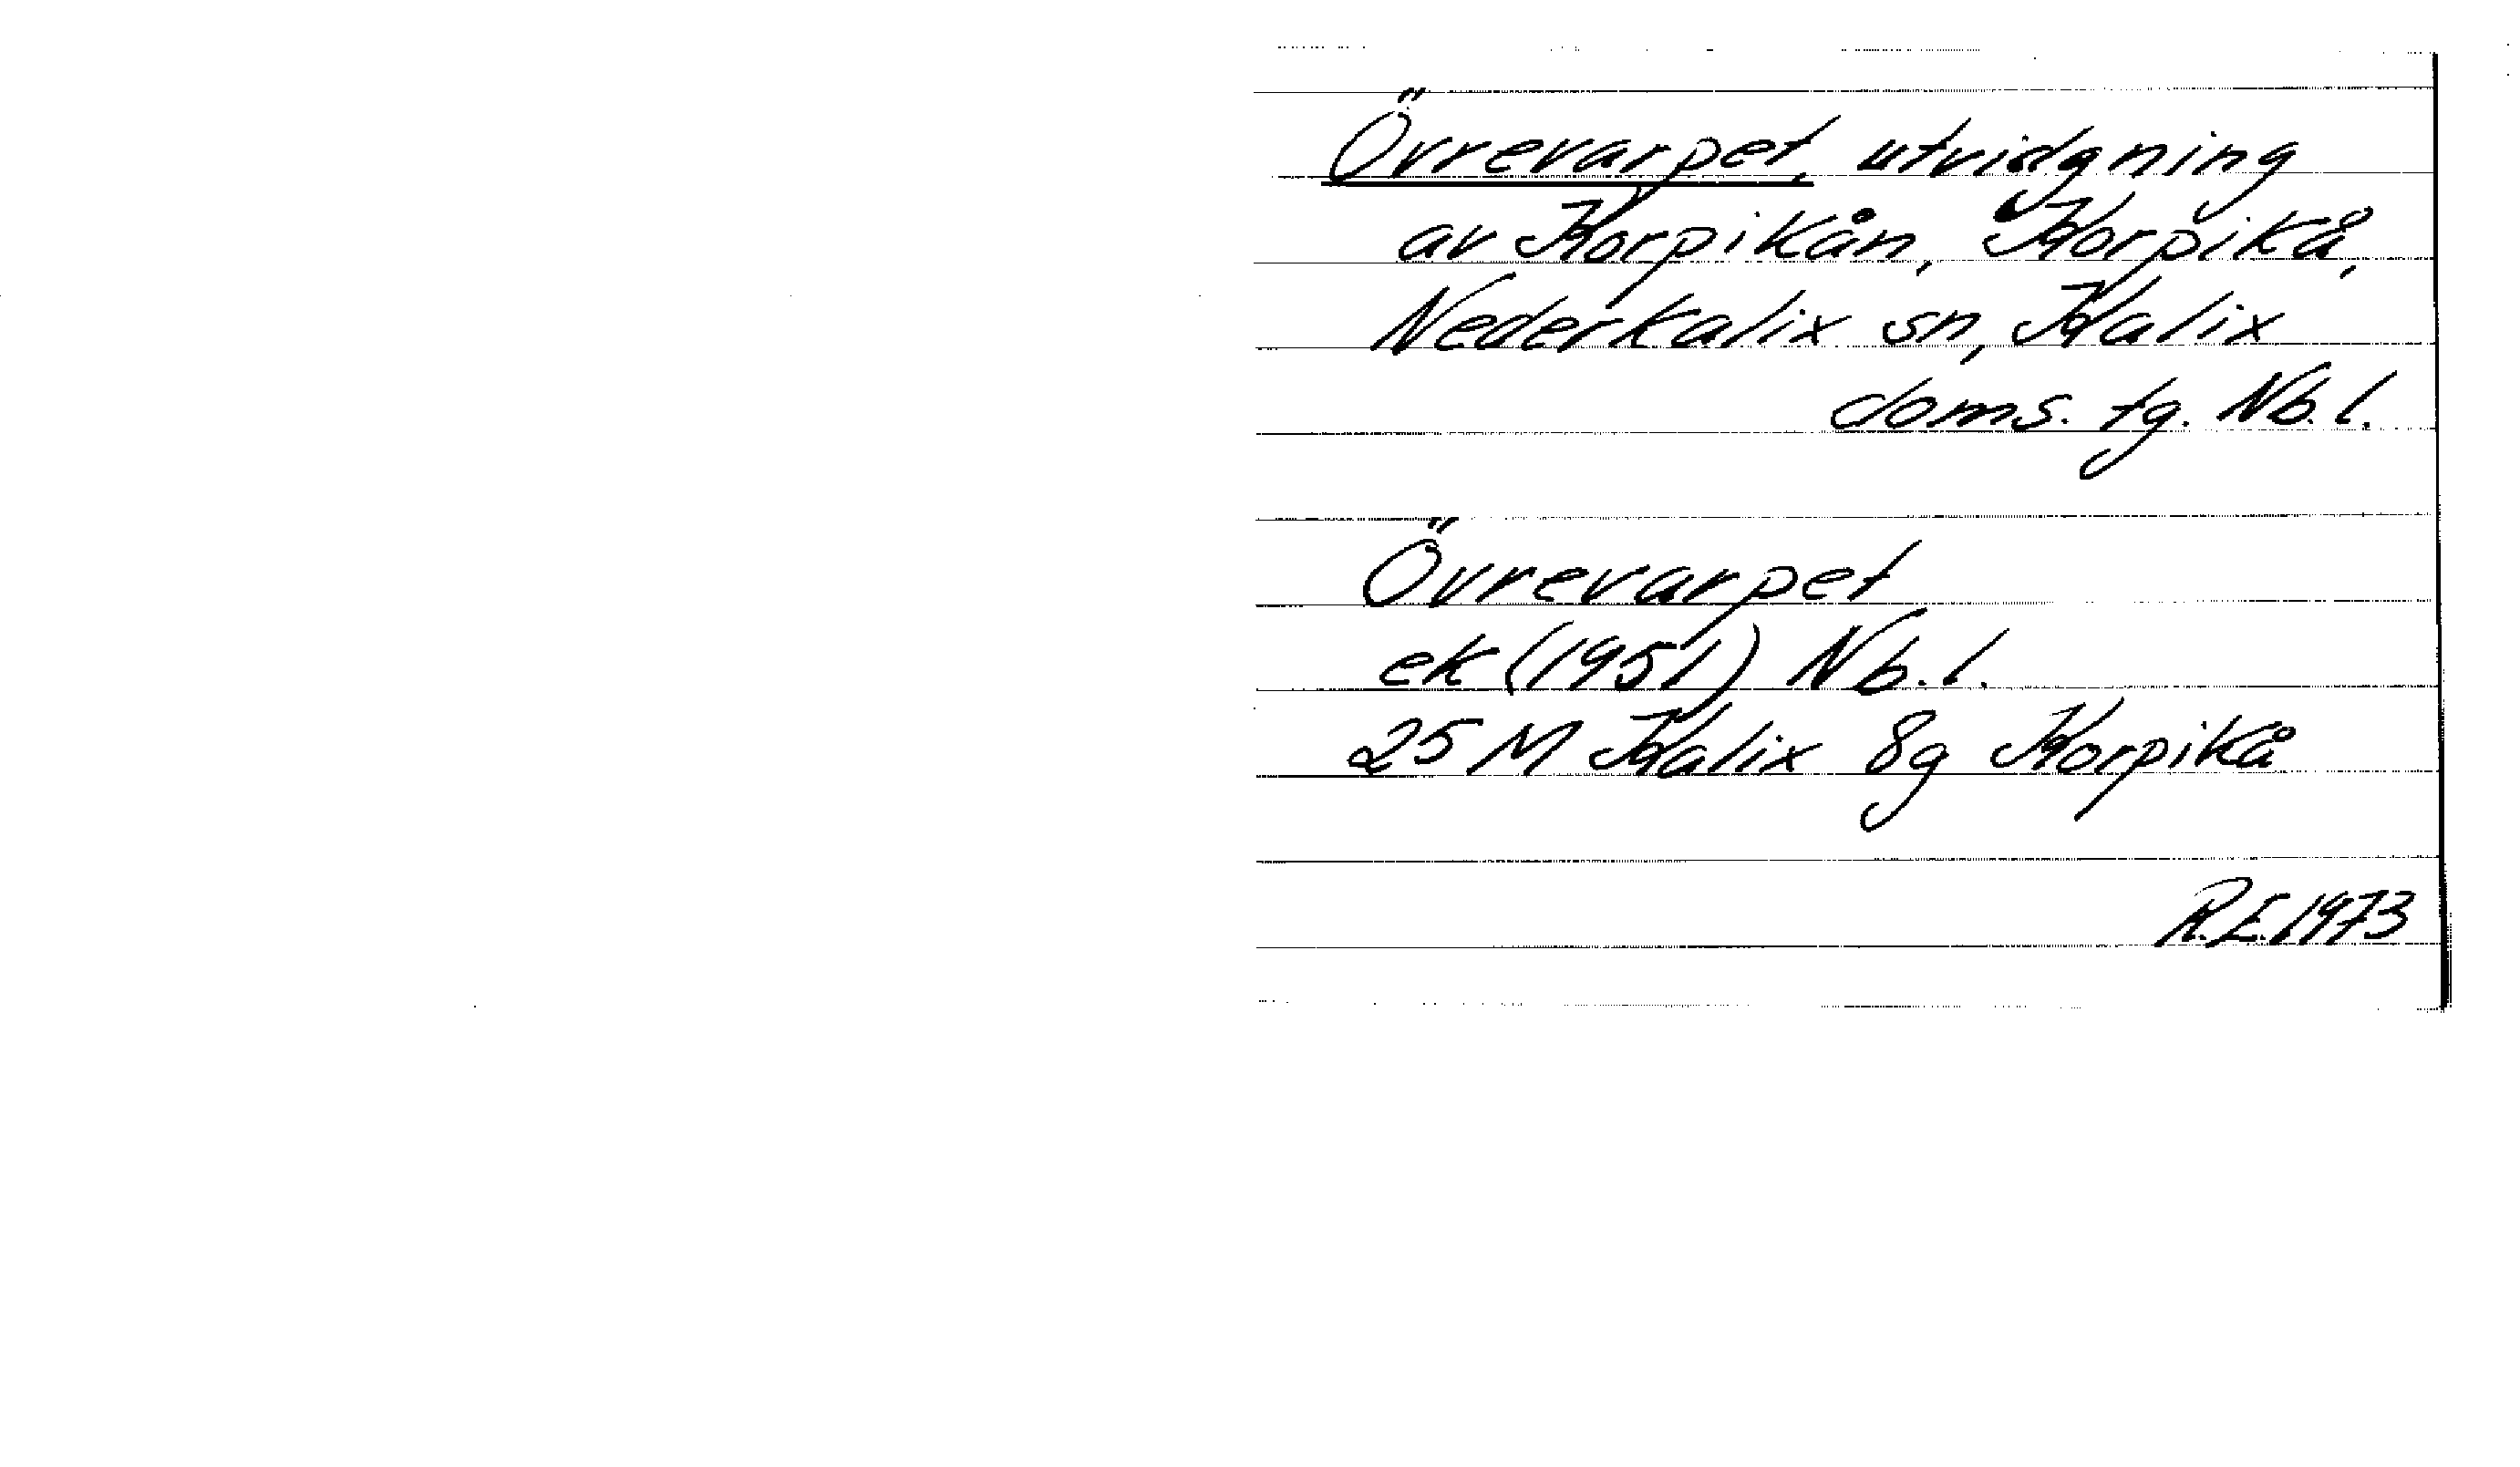 Övrevarpet, utvidgning
av Korpikån, Korpikå,
Nederkalix sn, Kalix
doms. tg. Nb.l.
Övrevarpet
ek (1951) Nb.l.
25 M Kalix 8g Korpikå
R.E.1973